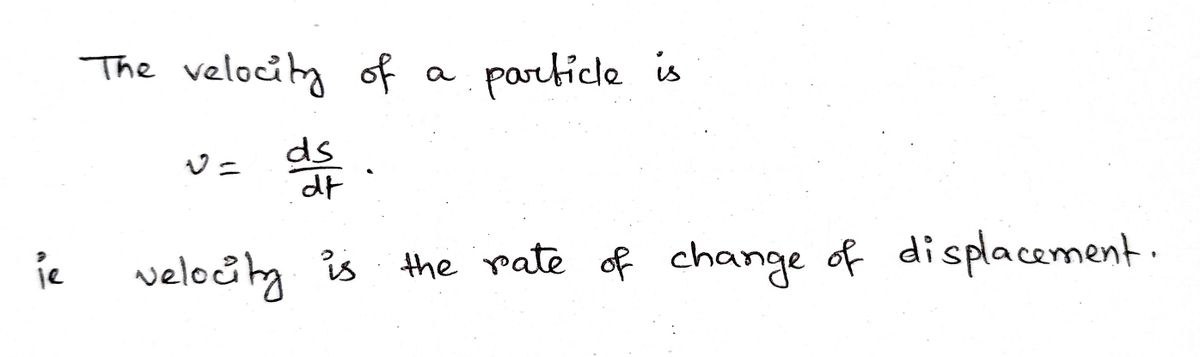 The velocity of a particle is
v = ds/dt .
ie velocity is the rate of change of displacement.